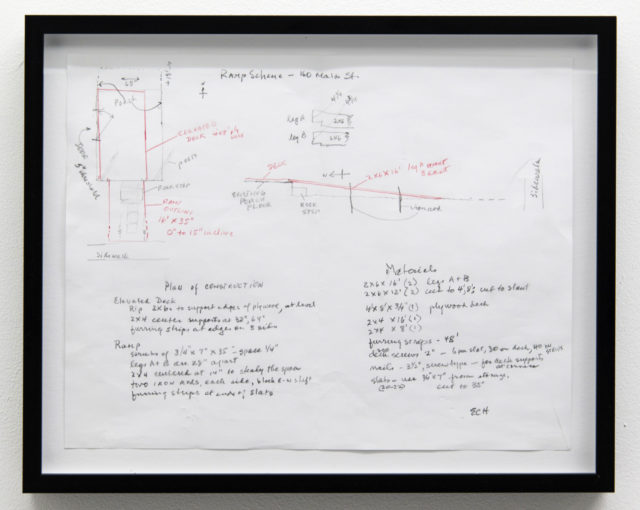 Ramp Scheme - 160 Main St.
68"
Porch
ELEVATED
DECK
Porch
ROCK STEP
RAMP
OUTLINE
16' X 35"
0" to 15" incline
Sidewalk
leg A
2X6
leg B
2X6
DECK
2X6X16' leg
EXISTING
PORCH
FLOOR
ROCK
STEP
Sidewalk
PLAN OF CONSTRUCTION
Elevated Deck
Rip 2X6s to support edges of plywood, at level
2X4 center supports at 32", 64"
furring strips at edges on 3 sides
Ramp
3/4" X 7" X 35" - space 1/4"
legs A + B are 23" apart
2X4 centered at 14" to steady the span
two iron rods, each side, block
furring strips at ends of slats
Materials
2X6 X 16' (2) legs A + B
2X6 X 12' (2) cut to 4', 8', cut to slant
4' X 8' X 3/4" (1) plywood deck
2X4 X 16' (1)
2X4 X 8' (1)
furring strips - 48'
deck screws 2" - 6 per slat, 30 on deck, 40 on strips
nails - 3 1/2", screw type - for deck supports
at corners
slats - use 3/4" X 7" from storage,
cut to 35"
ECH